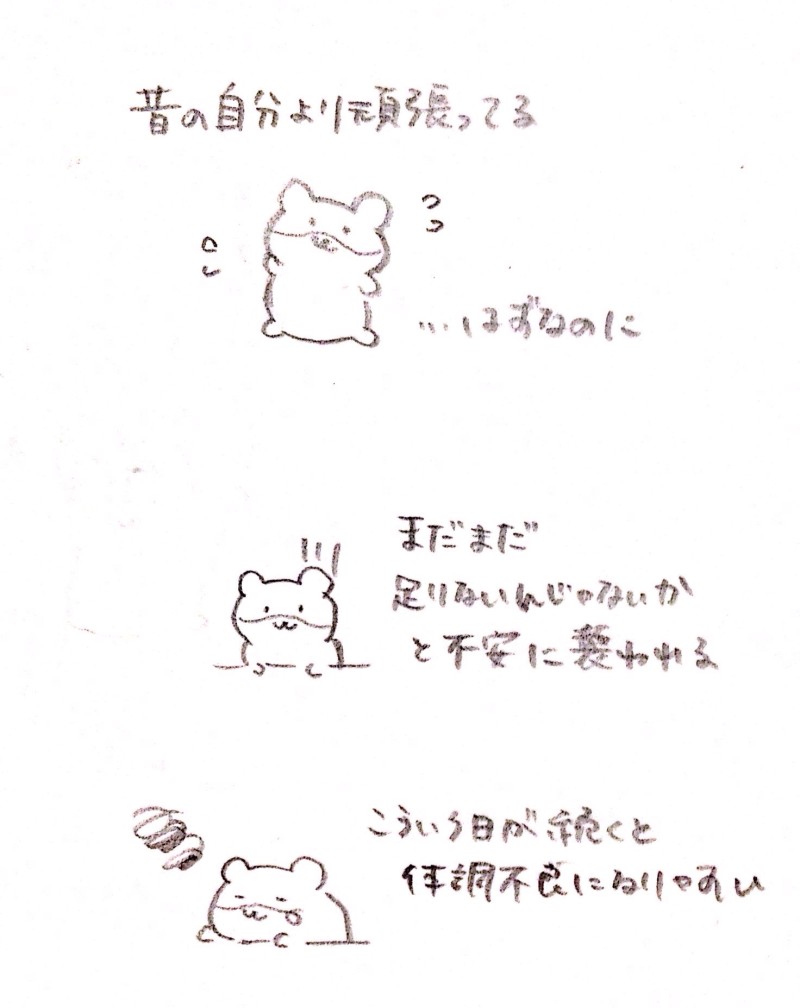 昔の自分より頑張ってる
…はずなのに
まだまだ
足りないんじゃないか
と不安に襲われる
こういう日が続くと
体調不良になりやすい